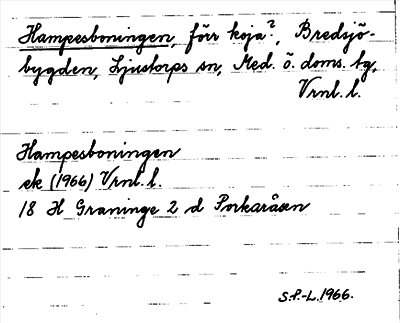 Hampesboningen, förr koja?, Bredsjö-
bygden, Ljustorps sn, Med. ö. doms. tg,
Vrnl. l.
Hampesboningen
ek (1966) Vrnl. l.
18 H Graninge 2 d Porkaråsen
S.P.-L. 1966.